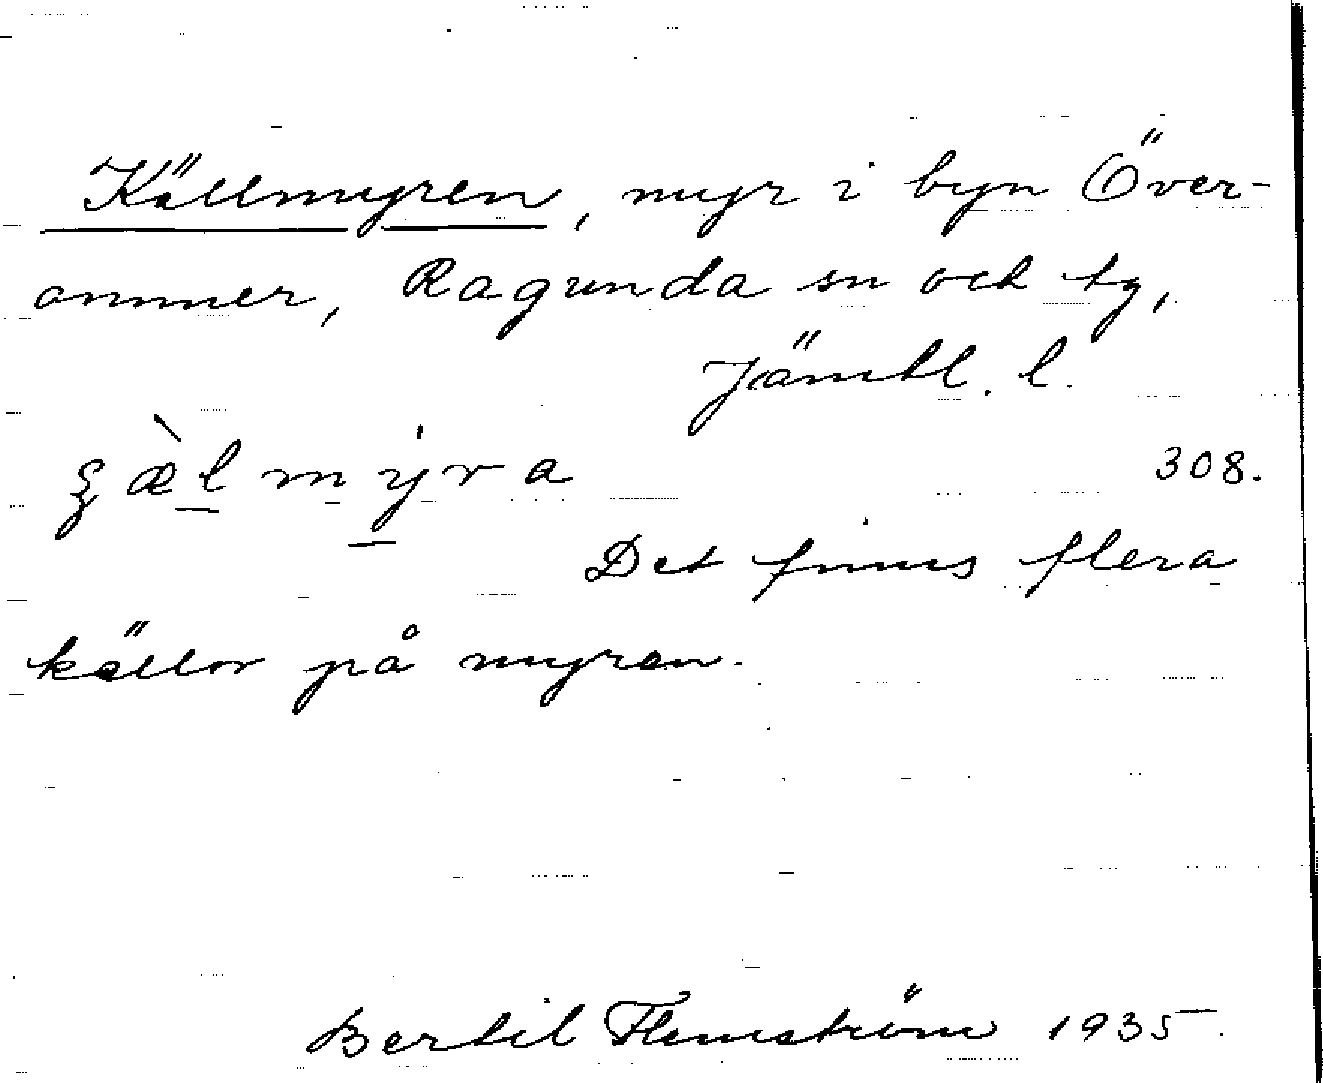 Källmyren, myr i byn Över-
ammer, Ragunda sn och tg,
Jämtl. l.
308.
Det finns flera
källor på myren.
Bertil Flemström 1935.